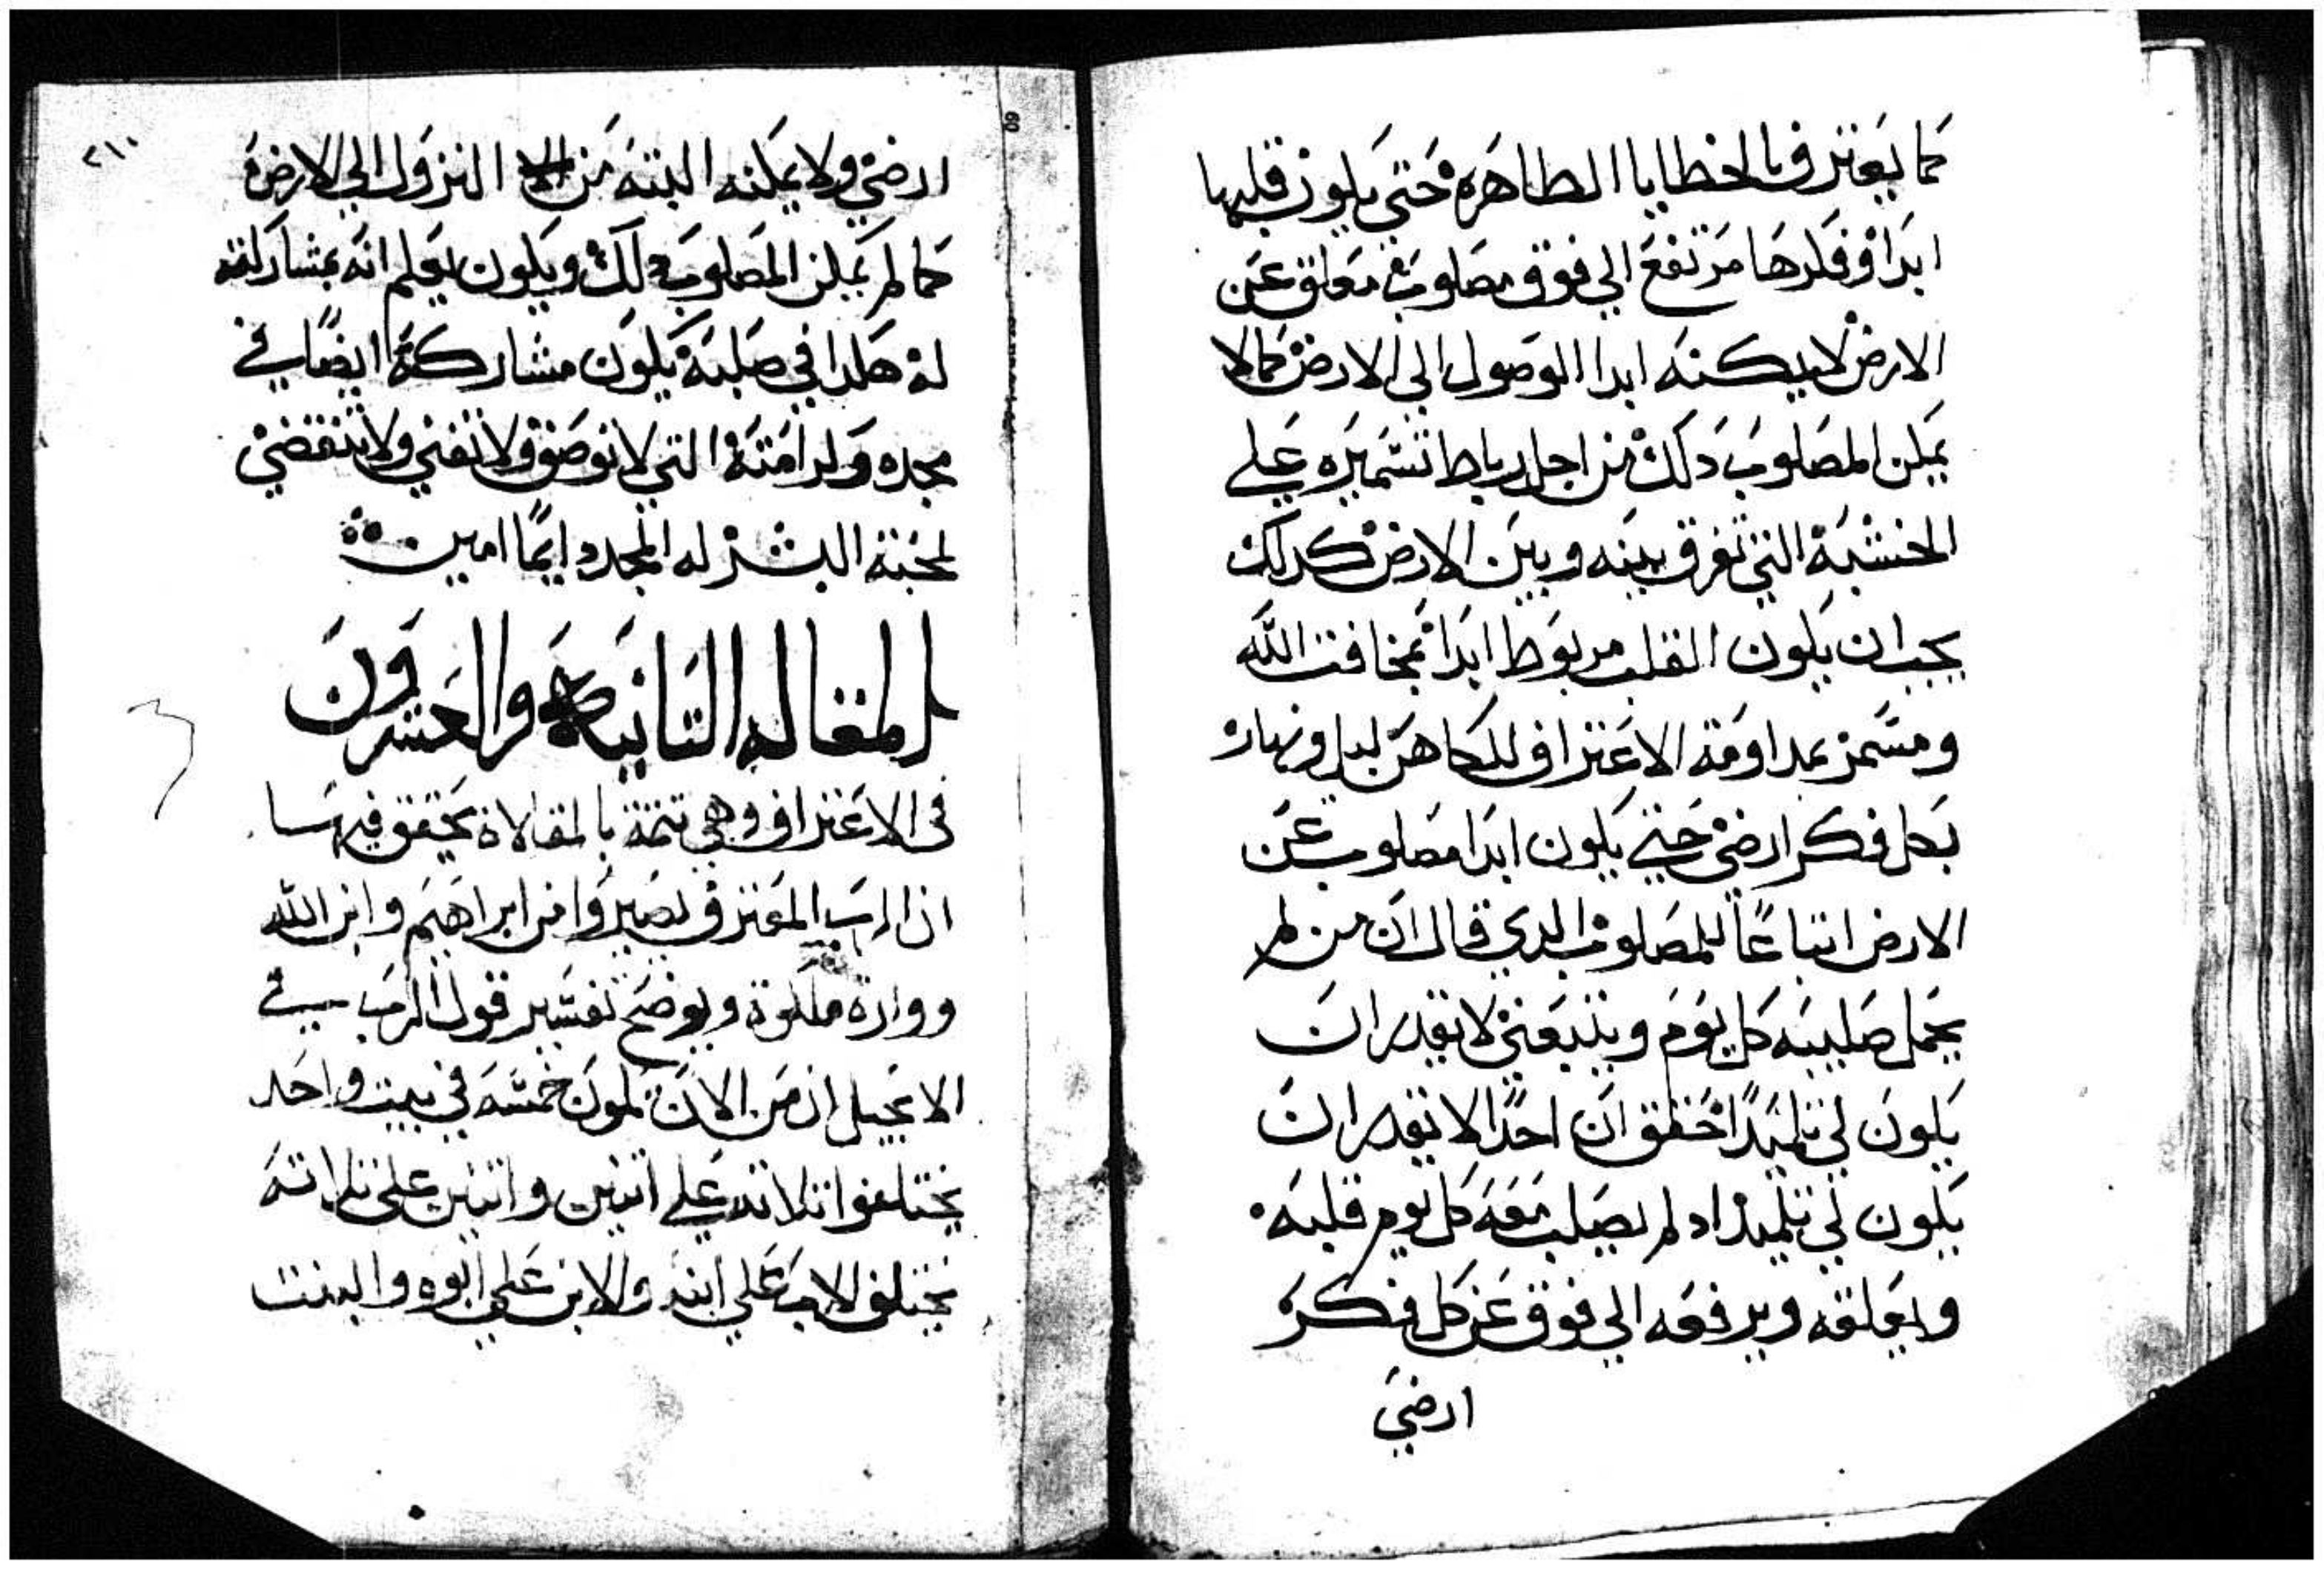 كما يعترف بالخطايا الطاهرة حتى يكون قلبها
ابدا وفكرها مرتفع الي فوق مصلوب معلق عن
الارض لا يمكنه ابدا الوصول الي الارض كما لا
يمكن المصلوب دلك من اجل رباط تسميره علي
الخشبة التي تفرق بينه وبين الارض كدلك
يجب ان يكون القلب مربوط ابدا بمخافت الله
ومسمر بمداومة الاعتراف للكاهن ليل ونهار
بكل فكر ارضي حتي يكون ابدا مصلوب عن
الارض اتباعًا للمصلوب الدي قال ان من لم
يحمل صليبه كل يوم ويتبعني لا يقدر ان
يكون لي تلميدًا حقق ان احدًا لا يقدر ان
يكون لي تلميدا اد لم يصلب معه كل يوم قلبه
ويعلقه ويرفعه الي فوق عن كل فكر
ارضي
٢١٠
ارضي ولا يمكنه البتة من النزول الي الارض
كما لم يمكن المصلوب دلك ويكون يعلم انه بمشاركته
له هكدا في صلبه يكون مشاركه ايضًا في
مجده وكرامته التي لا توصف ولا تفني ولا تنقضي
لمحبته البشر له المجد دايمًا امين
المقاله التانيه والعشرون
في الاعتراف وهي تتمة بالمقالاة يحقق فيها
ان الراهب المعترف يصير وامن ابراهيم وابن الله
ووارة ملكوته ويوضح تفسير قول الرب في
الانجيل ان من الان تكون خمسه في بيت واحد
يختلفوا تلاته علي اتنين واتنين علي تلاته
يختلف الاب علي ابنه والابن علي ابوه والبنت